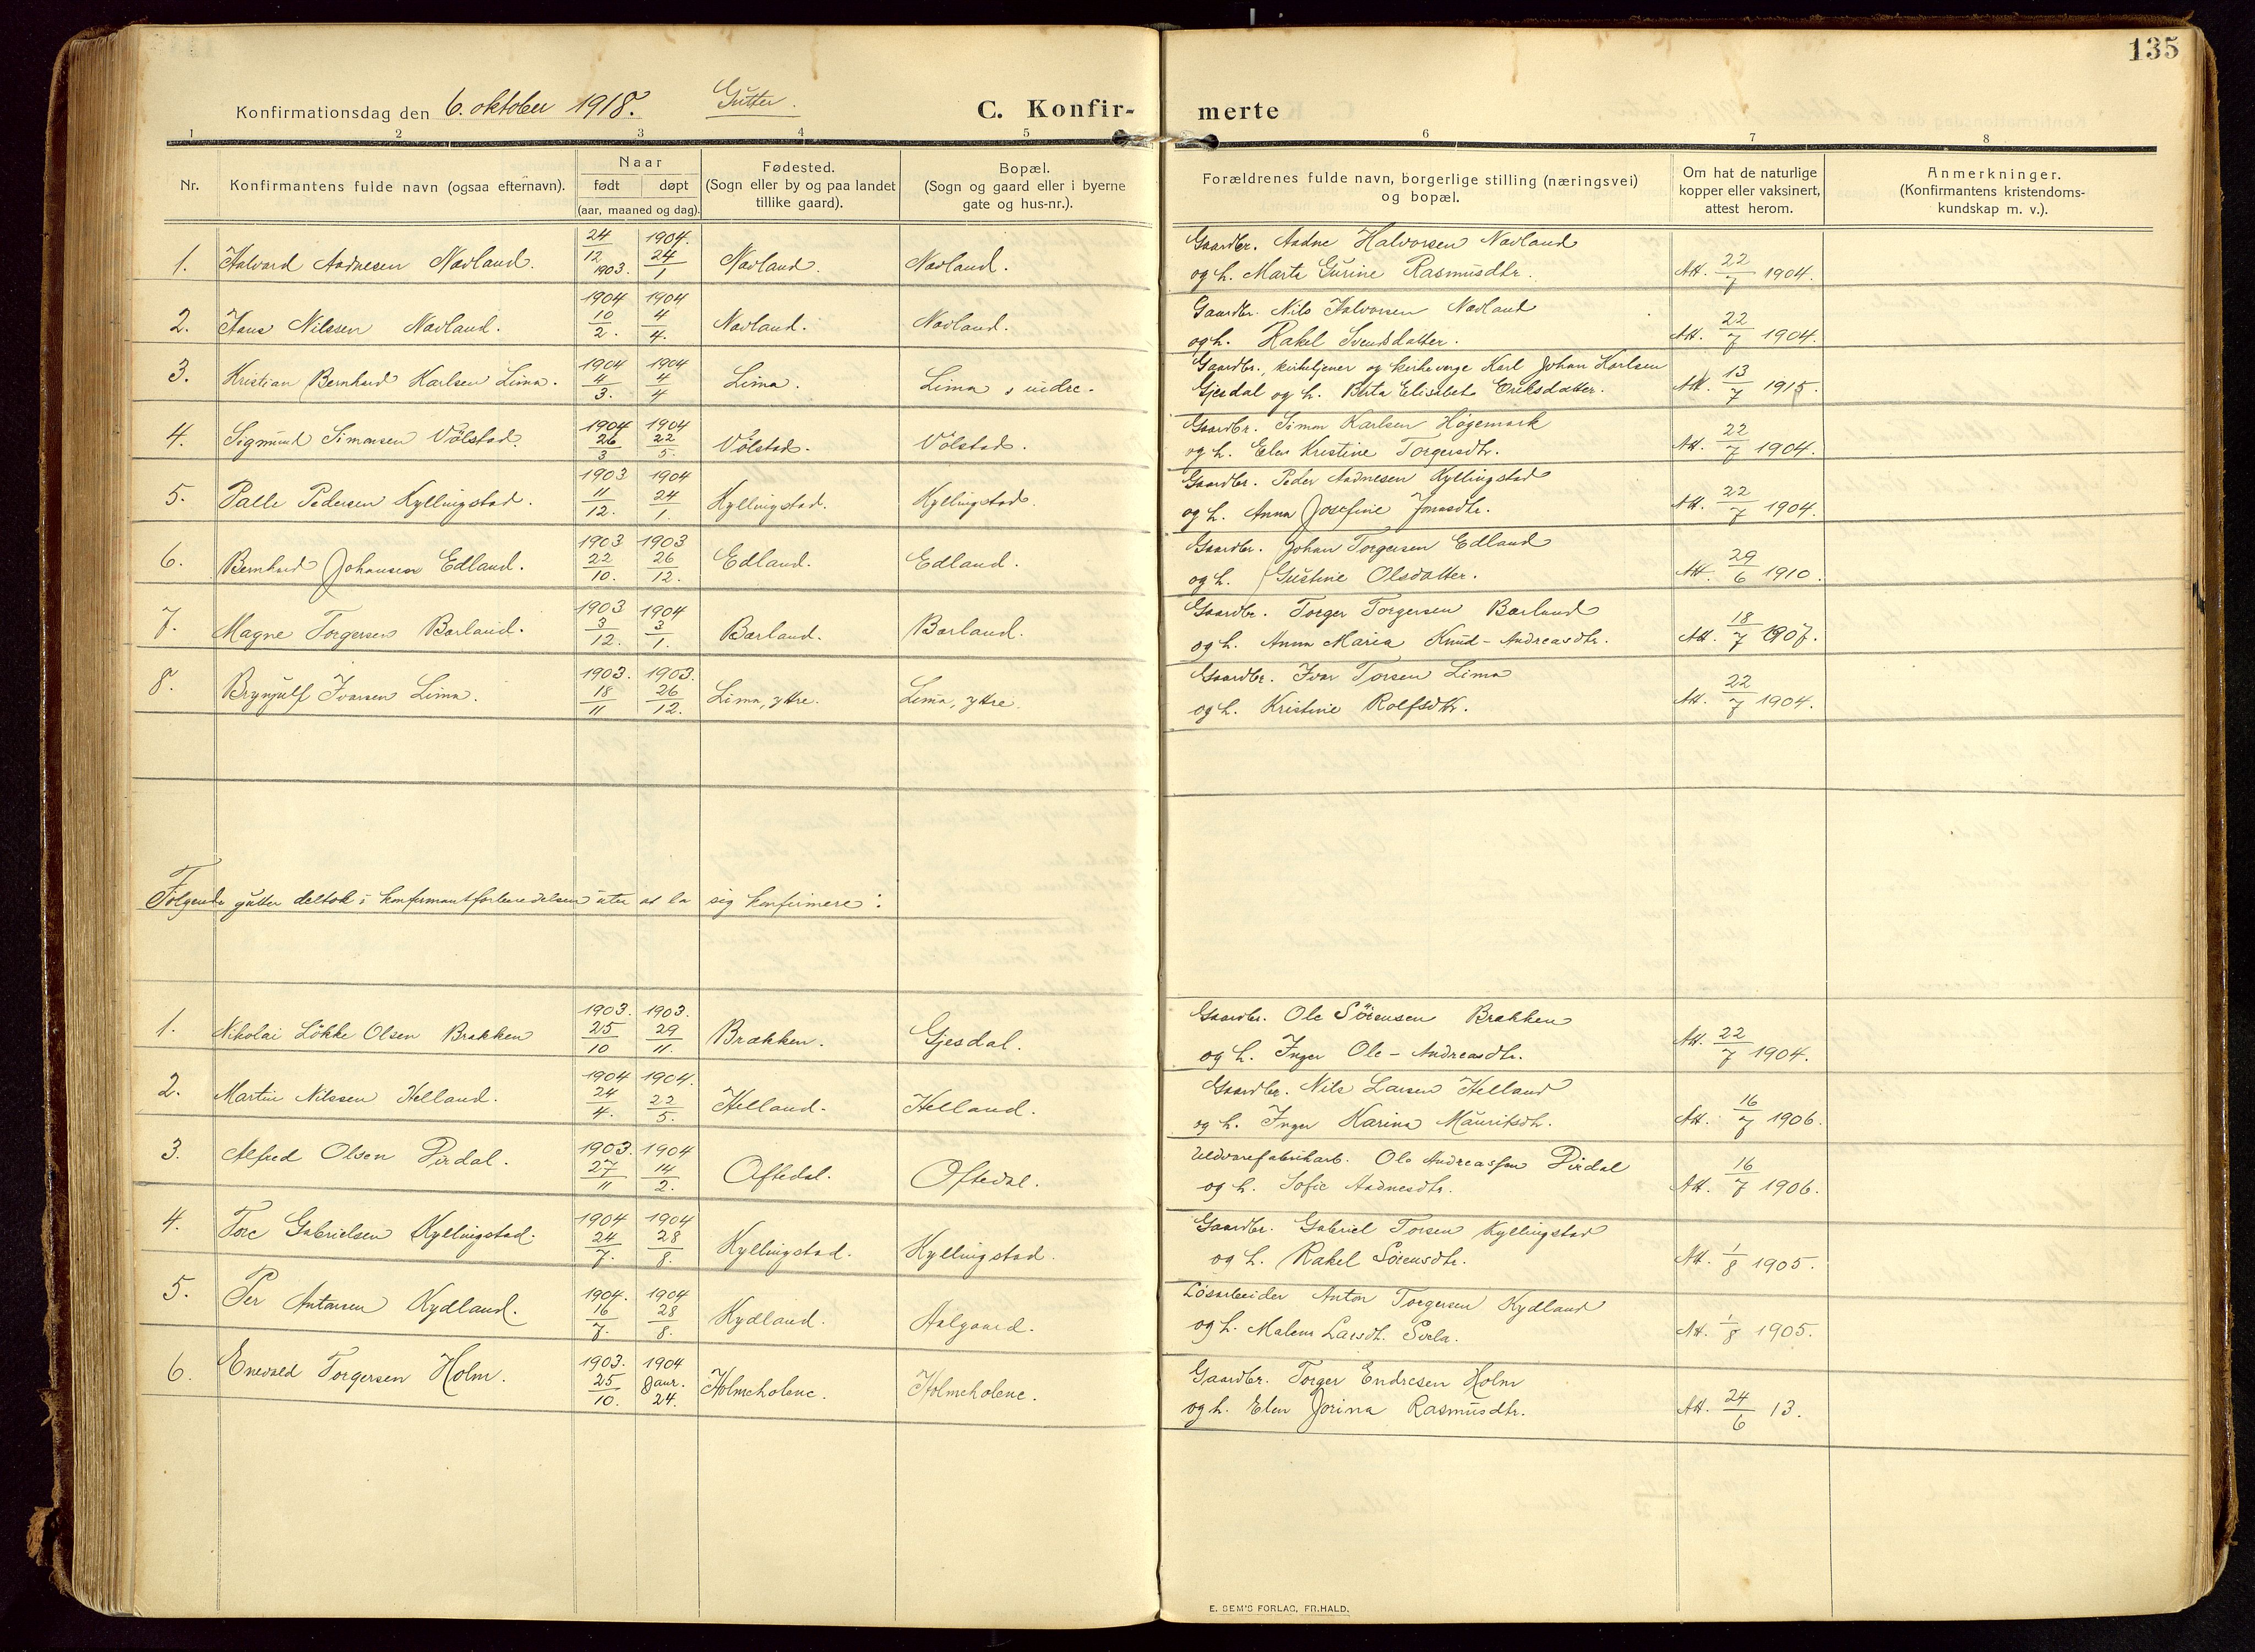 135
Konfirmationsdag den 6. oktober 1918. Gutter. C. Konfir- merte
1 2 3 4 5 6 7 8
Nr.
Konfirmantens fulde navn (ogsaa efternavn).
Naar
født døpt
(aar, maaned og dag).
Fødested.
(Sogn eller by og paa landet
tillike gaard).
Bopæl.
(Sogn og gaard eller i byerne
gate og hus-nr.).
Forældrenes fulde navn, borgerlige stilling (næringsvei)
og bopæl.
Om hat de naturlige
kopper eller vaksinert,
attest herom.
Anmerkninger.
(Konfirmantens kristendoms-
kundskap m. v.).
24 1904. Gaardbr. Aadne Halvorsen Navland
1. Halvard Aadnesen Navland. 12 1903. 24/1 Navland. Navland. og h. Marta Gurine Rasmusdtr. Att. 22/7 1904.
1904 1904 Gaardbr. Nils Halvorsen Navland
2. Hans Nilssen Navland. 10/2. 4/4. Navland. Navland. og h. Rakel Svendsdatter. Att. 22/7 1904.
1904 1904 Gaardbr., kirketjener og kirkeverge Karl Johan Karlsen
3. Kristian Bernhard Karlsen Lima. 4/3. 4/4 Lima. Lima, indre. Gjesdal og h. Berta Elisabet Eriksdatter. Att. 13/7 1915.
1904 1904 Gaardbr. Simon Karlsen Høgemark
4. Sigmund Simonsen Vølstad. 26/3 22/5. Vølstad. Vølstad. og h. Elen Kristine Torgersdtr. Att. 22/7 1904.
1903 1904 Gaardbr. Peder Aadnesen Kyllingstad
5. Palle Pedersen Kyllingstad. 11/12. 24/1. Kyllingstad. Kyllingstad. og h. Anna Josefine Jonasdtr. Att. 22/7 1904.
1903 1903 Gaardbr. Johan Torgersen Edland
6. Bernhard Johansen Edland. 22/10. 26/12. Edland. Edland. og h. Gustine Olsdatter. Att. 29/6 1910.
1903 1904 Gaardbr. Torger Torgersen Børland
7. Magne Torgersen Børland. 3/12. 3/1. Børland. Børland. og h. Anna Maria Knud-Andreasdtr. Att. 18/7 1907.
1903. 1903. Gaardbr. Ivar Torsen Lima
8. Brynjulf Ivarsen Lima. 18/11 26/12. Lima, ytre. Lima, ytre. og h. Kristine Rolfsdtr. Att. 22/7 1904.
Følgende gutter deltok i konfirmantforberedelsen uten at la sig konfirmere:
1903. 1903. Gaardbr. Ole Sørensen Brækken
1. Nikolai Løkke Olsen Brækken 25/10 29/11. Brækken. Gjesdal. og h. Inger Ole-Andreasdtr. Att. 22/7 1904.
1904 1904. Gaardbr. Nils Larsen Helland
2. Martin Nilssen Helland. 24/4. 22/5. Helland. Helland. og h. Inger Karina Mauritsdtr. Att. 16/7 1906.
1903. 1904 Uldvarefabrikarb. Ole Andreassen Dirdal
3. Alfred Olsen Dirdal. 27/11 14/2. Oftedal. Oftedal. og h. Sofie Aadnesdtr. Att. 16/7 1906.
1904 1904 Gaardbr. Gabriel Torsen Kyllingstad
4. Tore Gabrielsen Kyllingstad. 24/7. 28/8. Kyllingstad. Kyllingstad. og h. Rakel Sørensdtr. Att. 1/8 1905.
1904. 1904 Løsarbeider Anton Torgersen Kydland
5. Per Antonsen Kydland. 16/7. 28/8. Kydland. Aalgaard. og h. Malene Larsdt. Att. 1/8 1905.
1903. 1904 Gaardbr. Torger Endresen Holm
6. Enevald Torgersen Holm. 25/10. 24. Holmeholene. Holmeholene. og h. Elen Jorina Rasmusdtr. Att. 24/6 13.
E. SEM'S FORLAG, FR.HALD.